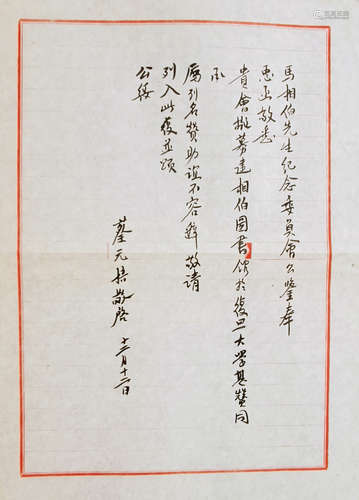 馬相伯先生紀念委員會公鑒奉
惠函敬悉
貴會擬募建相伯圖書館於復旦大學甚贊同
承
厲列名贊助誼不容辭敬請
列入此復並頌
公綏
蔡元培敬啓 十二月十二日